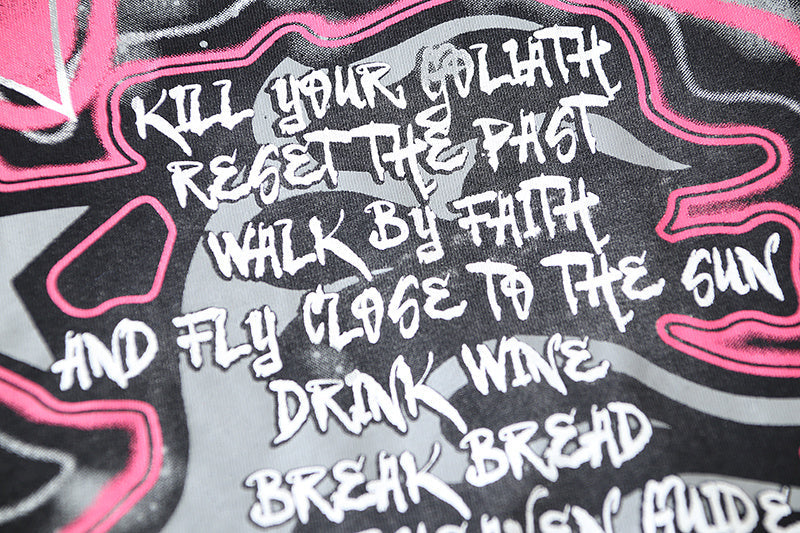 KILL YOUR GOLIATH
RESET THE PAST
WALK BY FAITH
AND FLY CLOSE TO THE SUN
DRINK WINE
BREAK BREAD
GUIDE